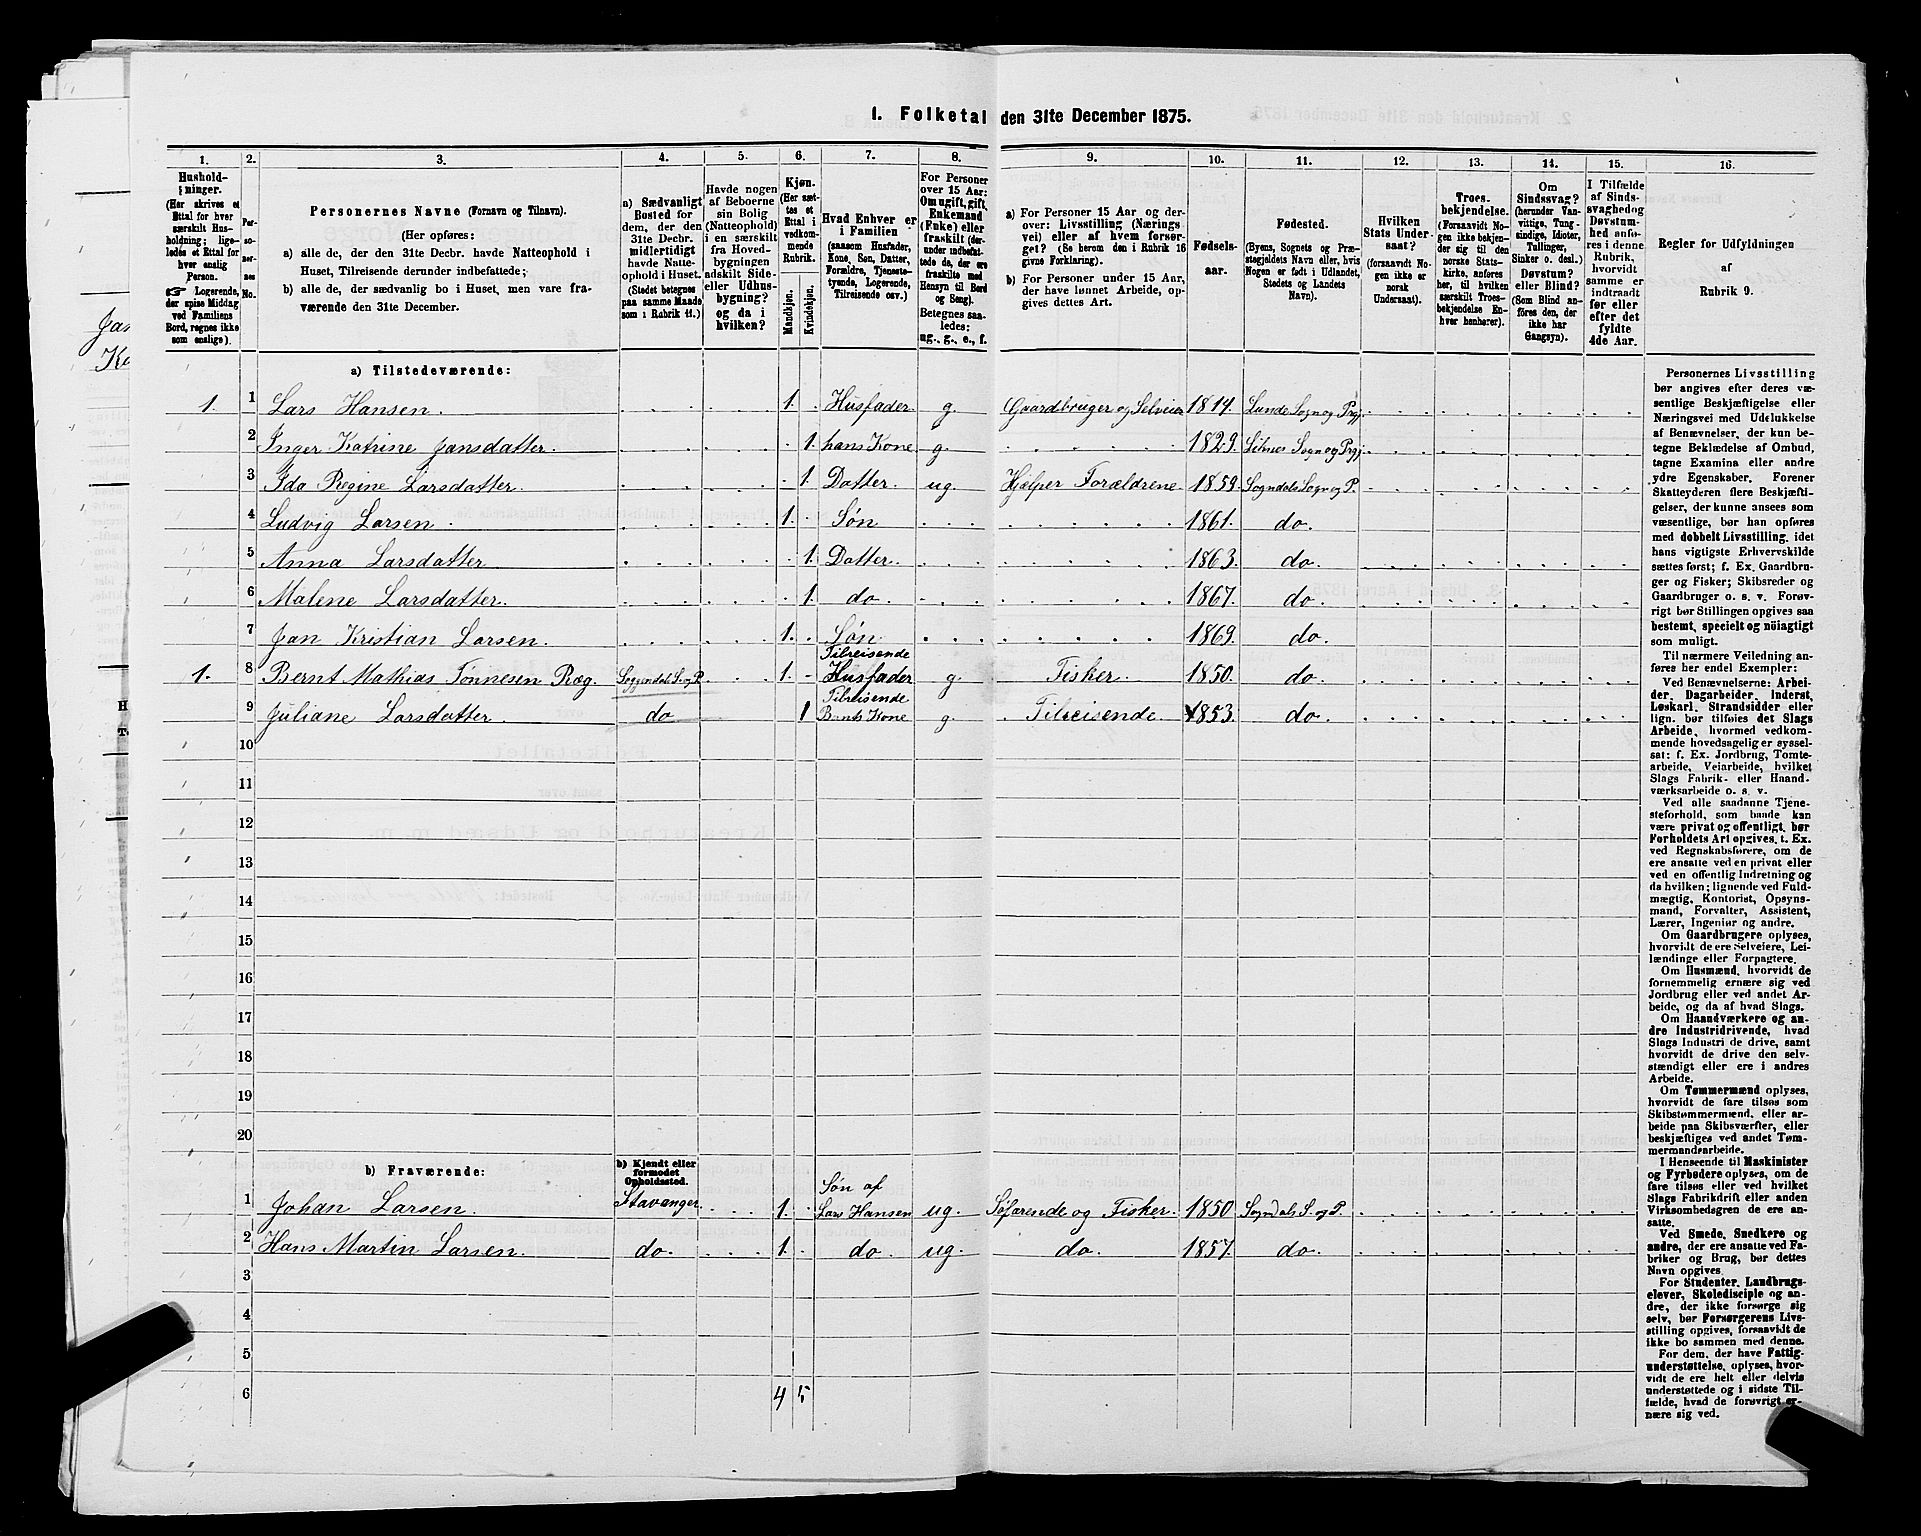 1. Folketal den 31te December 1875.
1. 2. 3. 4. 5. 6. 7. 8. 9. 10. 11. 12. 13. 14. 15. 16.
Hushold-
ninger.
(Her skrives et
Ettal for hver
særskilt Hus-
holdning; lige-
ledes et Ettal for
hver enslig
Person.
☞ Logerende,
der spise Middag
ved Familiens
Bord, regnes ikke
som enslige).
Per-
so-
ner-
nes
No.
Personernes Navne (Fornavn og Tilnavn).
(Her opføres:
a) alle de, der den 31te Decbr. havde Natteophold i
Huset, Tilreisende derunder indbefattede;
b) alle de, der sædvanlig bo i Huset, men vare fra-
værende den 31te December.
a) Sædvanligt
Bosted for
dem, der den
31te Decbr.
midlertidigt
havde Natte-
ophold i Huset.
(Stedet betegnes
paa samme Maade
som i Rubrik 11.)
Havde nogen
af Beboerne
sin Bolig
(Natteophold)
i en særskilt
fra Hoved-
bygningen
adskilt Side-
eller Udhus-
bygning?
og da i
hvilken?
Kjøn.
(Her sæt-
tes et
Ettal i
vedkom-
mende
Rubrik.
Mandkjøn.
Kvindekjøn.
Hvad Enhver er
i Familien
(saasom Husfader,
Kone, Søn, Datter,
Forældre, Tjeneste-
tyende, Logerende,
Tilreisende osv.)
For Personer
over 15 Aar:
Om ugift, gift,
Enkemand
(Enke) eller
fraskilt (der-
under indbefat-
tede de, der ere
fraskilte med
Hensyn til Bord
og Seng).
Betegnes saa-
ledes:
ug., g., e., f.
a) For Personer 15 Aar og der-
over: Livsstilling (Nærings-
vei) eller af hvem forsør-
get? (Se herom den i Rubrik 16
givne Forklaring).
b) For Personer under 15 Aar,
der have lønnet Arbeide, op-
gives dettes Art.
Fødsels-
aar.
Fødested.
(Byens, Sognets og Præ-
stegjeldets Navn eller, hvis
Nogen er født i Udlandet,
Stedets og Landets
Navn).
Hvilken
Stats Under-
saat?
(forsaavidt No-
gen ikke er
norsk
Undersaat).
Troes-
bekjendelse.
(Forsaavidt No-
gen ikke bekjen-
der sig til den
norske Stats-
kirke, anføres
her, til hvilken
særskilt Troes-
bekjendelse En-
hver henhører).
Om
Sindssvag?
(herunder Van-
vittige, Tung-
sindige, Idioter,
Tullinger,
Sinker o. desl.)
Døvstum?
eller Blind?
(Som Blind an-
föres den, der
ikke har
Gangsyn).
I Tilfælde
af Sinds-
svaghed og
Døvstum-
hed anfø-
res i denne
Rubrik,
hvorvidt
samme er
indtraadt
før eller
efter det
fyldte
4de Aar.
Regler for Udfyldningen
af
Rubrik 9.
a) Tilstedeværende:
1. 1 Lars Hansen. 1. Husfader g. Gaardbruger og Selveier 1814. Lunde Sogn og Prgj.
2 Inger Katrine Jansdatter. 1. hans Kone g. 1829. Sogn og Prgj.
3 Ida Regine Larsdatter. 1. Datter. ug. Hjælper Forældrene. 1859. Sogndals Sogn og P.
4 Ludvig Larsen. 1. Søn 1861. do.
5 Anna Larsdatter 1. Datter. 1863. do.
6 Malene Larsdatter. 1. do. 1867. do.
7 Jan Kristian Larsen. 1. Søn. 1869. do.
1. 8 Bernt Mathias Tønnesen Ræg. Soggendals S. og P. 1. Tilreisende Husfader g. Fisker. 1850. do.
9 Juliane Larsdatter. do 1 Tilreisende Bernts Kone g. Tilreisende. 1853. do.
10
11
12
13
14
15
16
17
18
19
20
b) Fraværende:
b) Kjendt eller
formodet
Opholdssted.
1 Johan Larsen. Stavanger. 1. Søn af Lars Hansen ug. Søfarende og Fisker. 1850 Sogndals S. og P.
2 Hans Martin Larsen. do. 1. do. ug. do. 1857. do.
3
4
5
6 4 5
Personernes Livsstilling
bør angives efter deres væ-
sentlige Beskjæftigelse eller
Næringsvei med Udelukkelse
af Benævnelser, der kun be-
tegne Beklædelse af Ombud,
tagne Examina eller andre
ydre Egenskaber. Forener
Skatteyderen flere Beskjæfti-
gelser, der kunne ansees som
væsentlige, bør han opføres
med dobbelt Livsstilling, idet
hans vigtigste Erhvervskilde
sættes først; f. Ex. Gaardbru-
ger og Fisker; Skibsreder og
Gaardbruger o. s. v. Forøv-
rigt bør Stillingen opgives saa
bestemt, specielt og nöiagtigt
som muligt.
Til nærmere Veiledning an-
føres her endel Exempler:
Ved Benævnelserne: Arbei-
der, Dagarbeider, Inderst,
Løskarl, Strandsidder eller
lign. bør tilføies det Slags
Arbeide, hvormed vedkom-
mende hovedsagelig er syssel-
sat: f. Ex. Jordbrug, Tomte-
arbeide, Veiarbeide, hvilket
Slags Fabrik- eller Haand-
værksarbeide o. s. v.
Ved alle saadanne Tjene-
steforhold, som baade kan
være privat og offentligt, bør
Forholdets Art opgives, t. Ex.
ved Regnskabsførere, om de
ere ansatte ved en privat eller
ved en offentlig Indretning og
da hvilken; lignende ved Fuld-
mægtig, Kontorist, Opsyns-
mand, Forvalter, Assistent,
Lærer, Ingeniør og andre.
Om Gaardbrugere oplyses,
hvorvidt de ere Selveiere, Lei-
lændinge eller Forpagtere.
Om Husmænd, hvorvidt de
fornemmelig ernære sig ved
Jordbrug eller ved andet Ar-
beide, og da af hvad Slags.
Om Haandværkere og an-
dre Industridrivende, hvad
Slags Industri de drive, samt
hvorvidt de drive den selv-
stændigt eller ere i andres
Arbeide.
Om Tømmermænd oplyses,
hvorvidt de fare tilsøs som
Skibstømmermænd, eller ar-
beide paa Skibsværfter, eller
beskjæftiges ved andet Tøm-
mermandsarbeide.
I Henseende til Maskinister
og Fyrbødere oplyses, om de
fare tilsøs eller ved hvilket
Slags Fabrikdrift eller anden
Virksomhedsgren de ere an-
satte.
Ved Smede, Snedkere og
andre, der ere ansatte ved Fa-
briker og Brug, bør dettes
Navn opgives.
For Studenter, Landbrugs-
elever, Skoledisciple og an-
dre, der ikke forsørge sig
selv, bør Forsørgerens Livs-
stilling opgives, forsaavidt de
ikke bo sammen med denne.
For dem, der have Fattig-
understøttelse, oplyses, hvor-
vidt de ere helt eller delvis
understøttede og i sidste Til-
fælde, hvad de forøvrigt er-
nære sig ved.